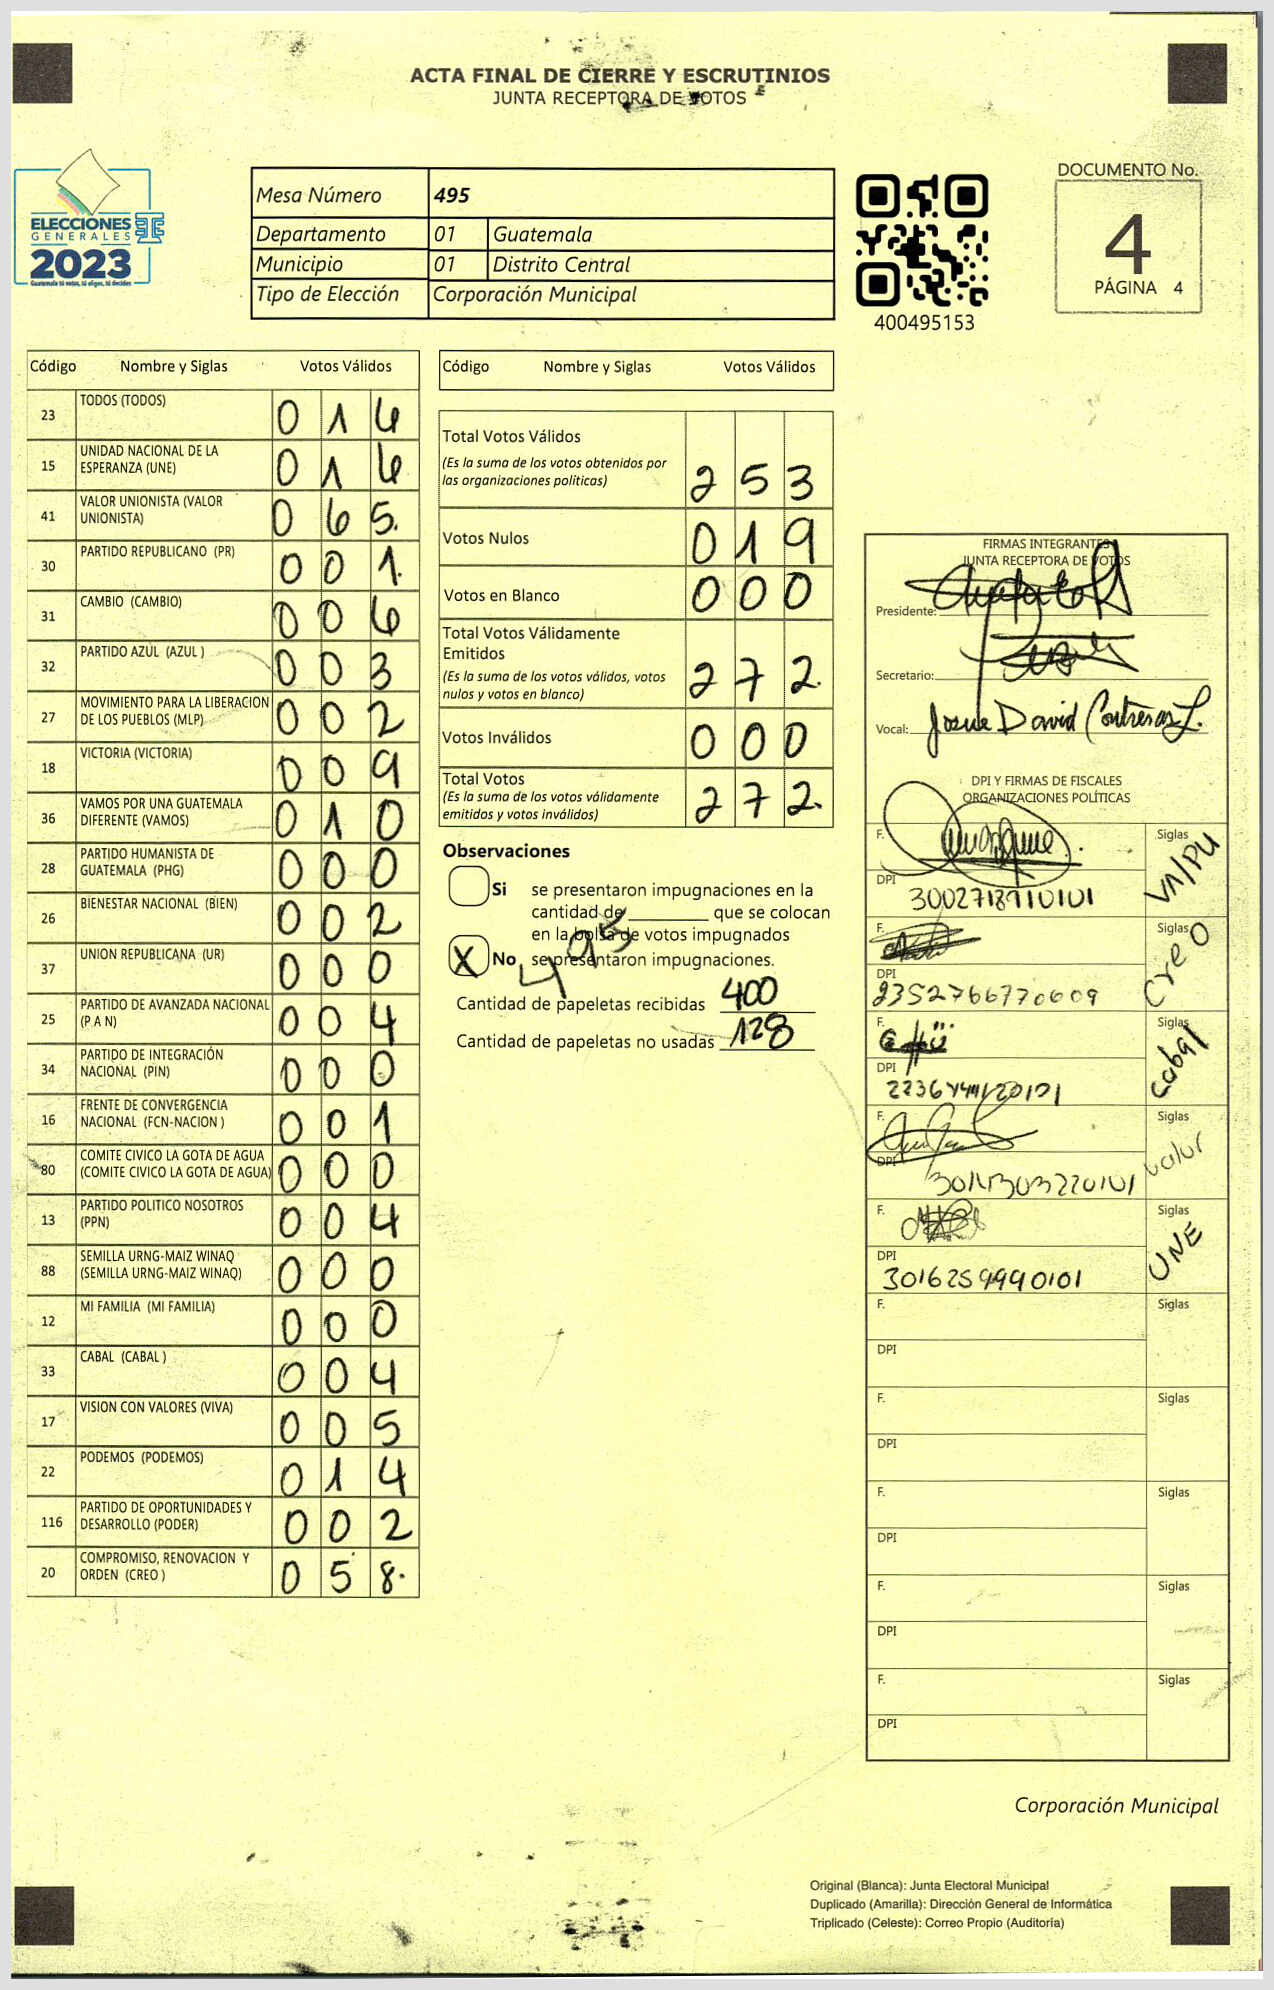 ACTA FINAL DE CIERRE Y ESCRUTINIOS
JUNTA RECEPTORA DE VOTOS
ELECCIONES
GENERALES
2023
Guatemala tú votas, tú eliges, tú decides
Mesa Número 495
Departamento 01 Guatemala
Municipio 01 Distrito Central
Tipo de Elección Corporación Municipal
400495153
DOCUMENTO No.
4
PÁGINA 4
Código Nombre y Siglas Votos Válidos
23 TODOS (TODOS) 0 1 6
15 UNIDAD NACIONAL DE LA
ESPERANZA (UNE) 0 1 6
41 VALOR UNIONISTA (VALOR
UNIONISTA) 0 6 5.
30 PARTIDO REPUBLICANO (PR) 0 0 1.
31 CAMBIO (CAMBIO) 0 0 6
32 PARTIDO AZUL (AZUL ) 0 0 3
27 MOVIMIENTO PARA LA LIBERACION
DE LOS PUEBLOS (MLP) 0 0 2
18 VICTORIA (VICTORIA) 0 0 9
36 VAMOS POR UNA GUATEMALA
DIFERENTE (VAMOS) 0 1 0
28 PARTIDO HUMANISTA DE
GUATEMALA (PHG) 0 0 0
26 BIENESTAR NACIONAL (BIEN) 0 0 2
37 UNION REPUBLICANA (UR) 0 0 0
25 PARTIDO DE AVANZADA NACIONAL
(P A N) 0 0 4
34 PARTIDO DE INTEGRACIÓN
NACIONAL (PIN) 0 0 0
16 FRENTE DE CONVERGENCIA
NACIONAL (FCN-NACION ) 0 0 1
80 COMITE CIVICO LA GOTA DE AGUA
(COMITE CIVICO LA GOTA DE AGUA) 0 0 0
13 PARTIDO POLITICO NOSOTROS
(PPN) 0 0 4
88 SEMILLA URNG-MAIZ WINAQ
(SEMILLA URNG-MAIZ WINAQ) 0 0 0
12 MI FAMILIA (MI FAMILIA) 0 0 0
33 CABAL (CABAL ) 0 0 4
17 VISION CON VALORES (VIVA) 0 0 5
22 PODEMOS (PODEMOS) 0 1 4
116 PARTIDO DE OPORTUNIDADES Y
DESARROLLO (PODER) 0 0 2
20 COMPROMISO, RENOVACION Y
ORDEN (CREO ) 0 5 8.
Código Nombre y Siglas Votos Válidos
Total Votos Válidos
(Es la suma de los votos obtenidos por
las organizaciones políticas) 2 5 3
Votos Nulos 0 1 9
Votos en Blanco 0 0 0
Total Votos Válidamente
Emitidos
(Es la suma de los votos válidos, votos
nulos y votos en blanco) 2 7 2.
Votos Inválidos 0 0 0
Total Votos
(Es la suma de los votos válidamente
emitidos y votos inválidos) 2 7 2.
Observaciones
Si se presentaron impugnaciones en la
cantidad de ________ que se colocan
en la bolsa de votos impugnados
X No se presentaron impugnaciones.
495
Cantidad de papeletas recibidas 400
Cantidad de papeletas no usadas 128
FIRMAS INTEGRANTES
JUNTA RECEPTORA DE VOTOS
Presidente:
Secretario:
Vocal: Josue David Contreras L.
DPI Y FIRMAS DE FISCALES
ORGANIZACIONES POLÍTICAS
F. Siglas VA/PU
DPI
F. Siglas CreO
DPI 2352766770609
F. Siglas cabal
DPI
F. Siglas valor
DPI
F. Siglas UNE
DPI 3016259990101
F. Siglas
DPI
F. Siglas
DPI
F. Siglas
DPI
F. Siglas
DPI
F. Siglas
DPI
Corporación Municipal
Original (Blanca): Junta Electoral Municipal
Duplicado (Amarilla): Dirección General de Informática
Triplicado (Celeste): Correo Propio (Auditoría)